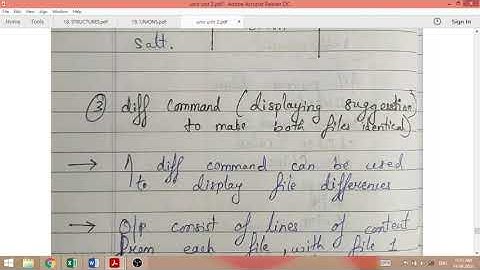 unix unit 2.pdf - Adobe Acrobat Reader DC
File Edit View Sign Window Help
Home Tools 18. STRUCTURES.pdf 19. UNIONS.pdf unix unit 2.pdf × Sign In
salt.
③ diff command (displaying suggestion
to make both files identical)
→ diff command can be used
to display file differences
→ O/p consist of lines of context
from each file, with file 1
ENG